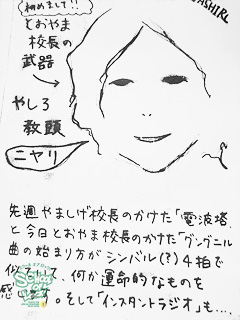 初めまして!!
とおやま
校長の
武器
やしろ
教頭
ニヤリ
YASHIRO
先週やましげ校長のかけた「電波塔」
と今日とおやま校長のかけた「グングニル」
曲の始まり方がシンバル(?)4拍で
似ていて、何か運命的なものを
感じます。そして「インスタントラジオ」も....